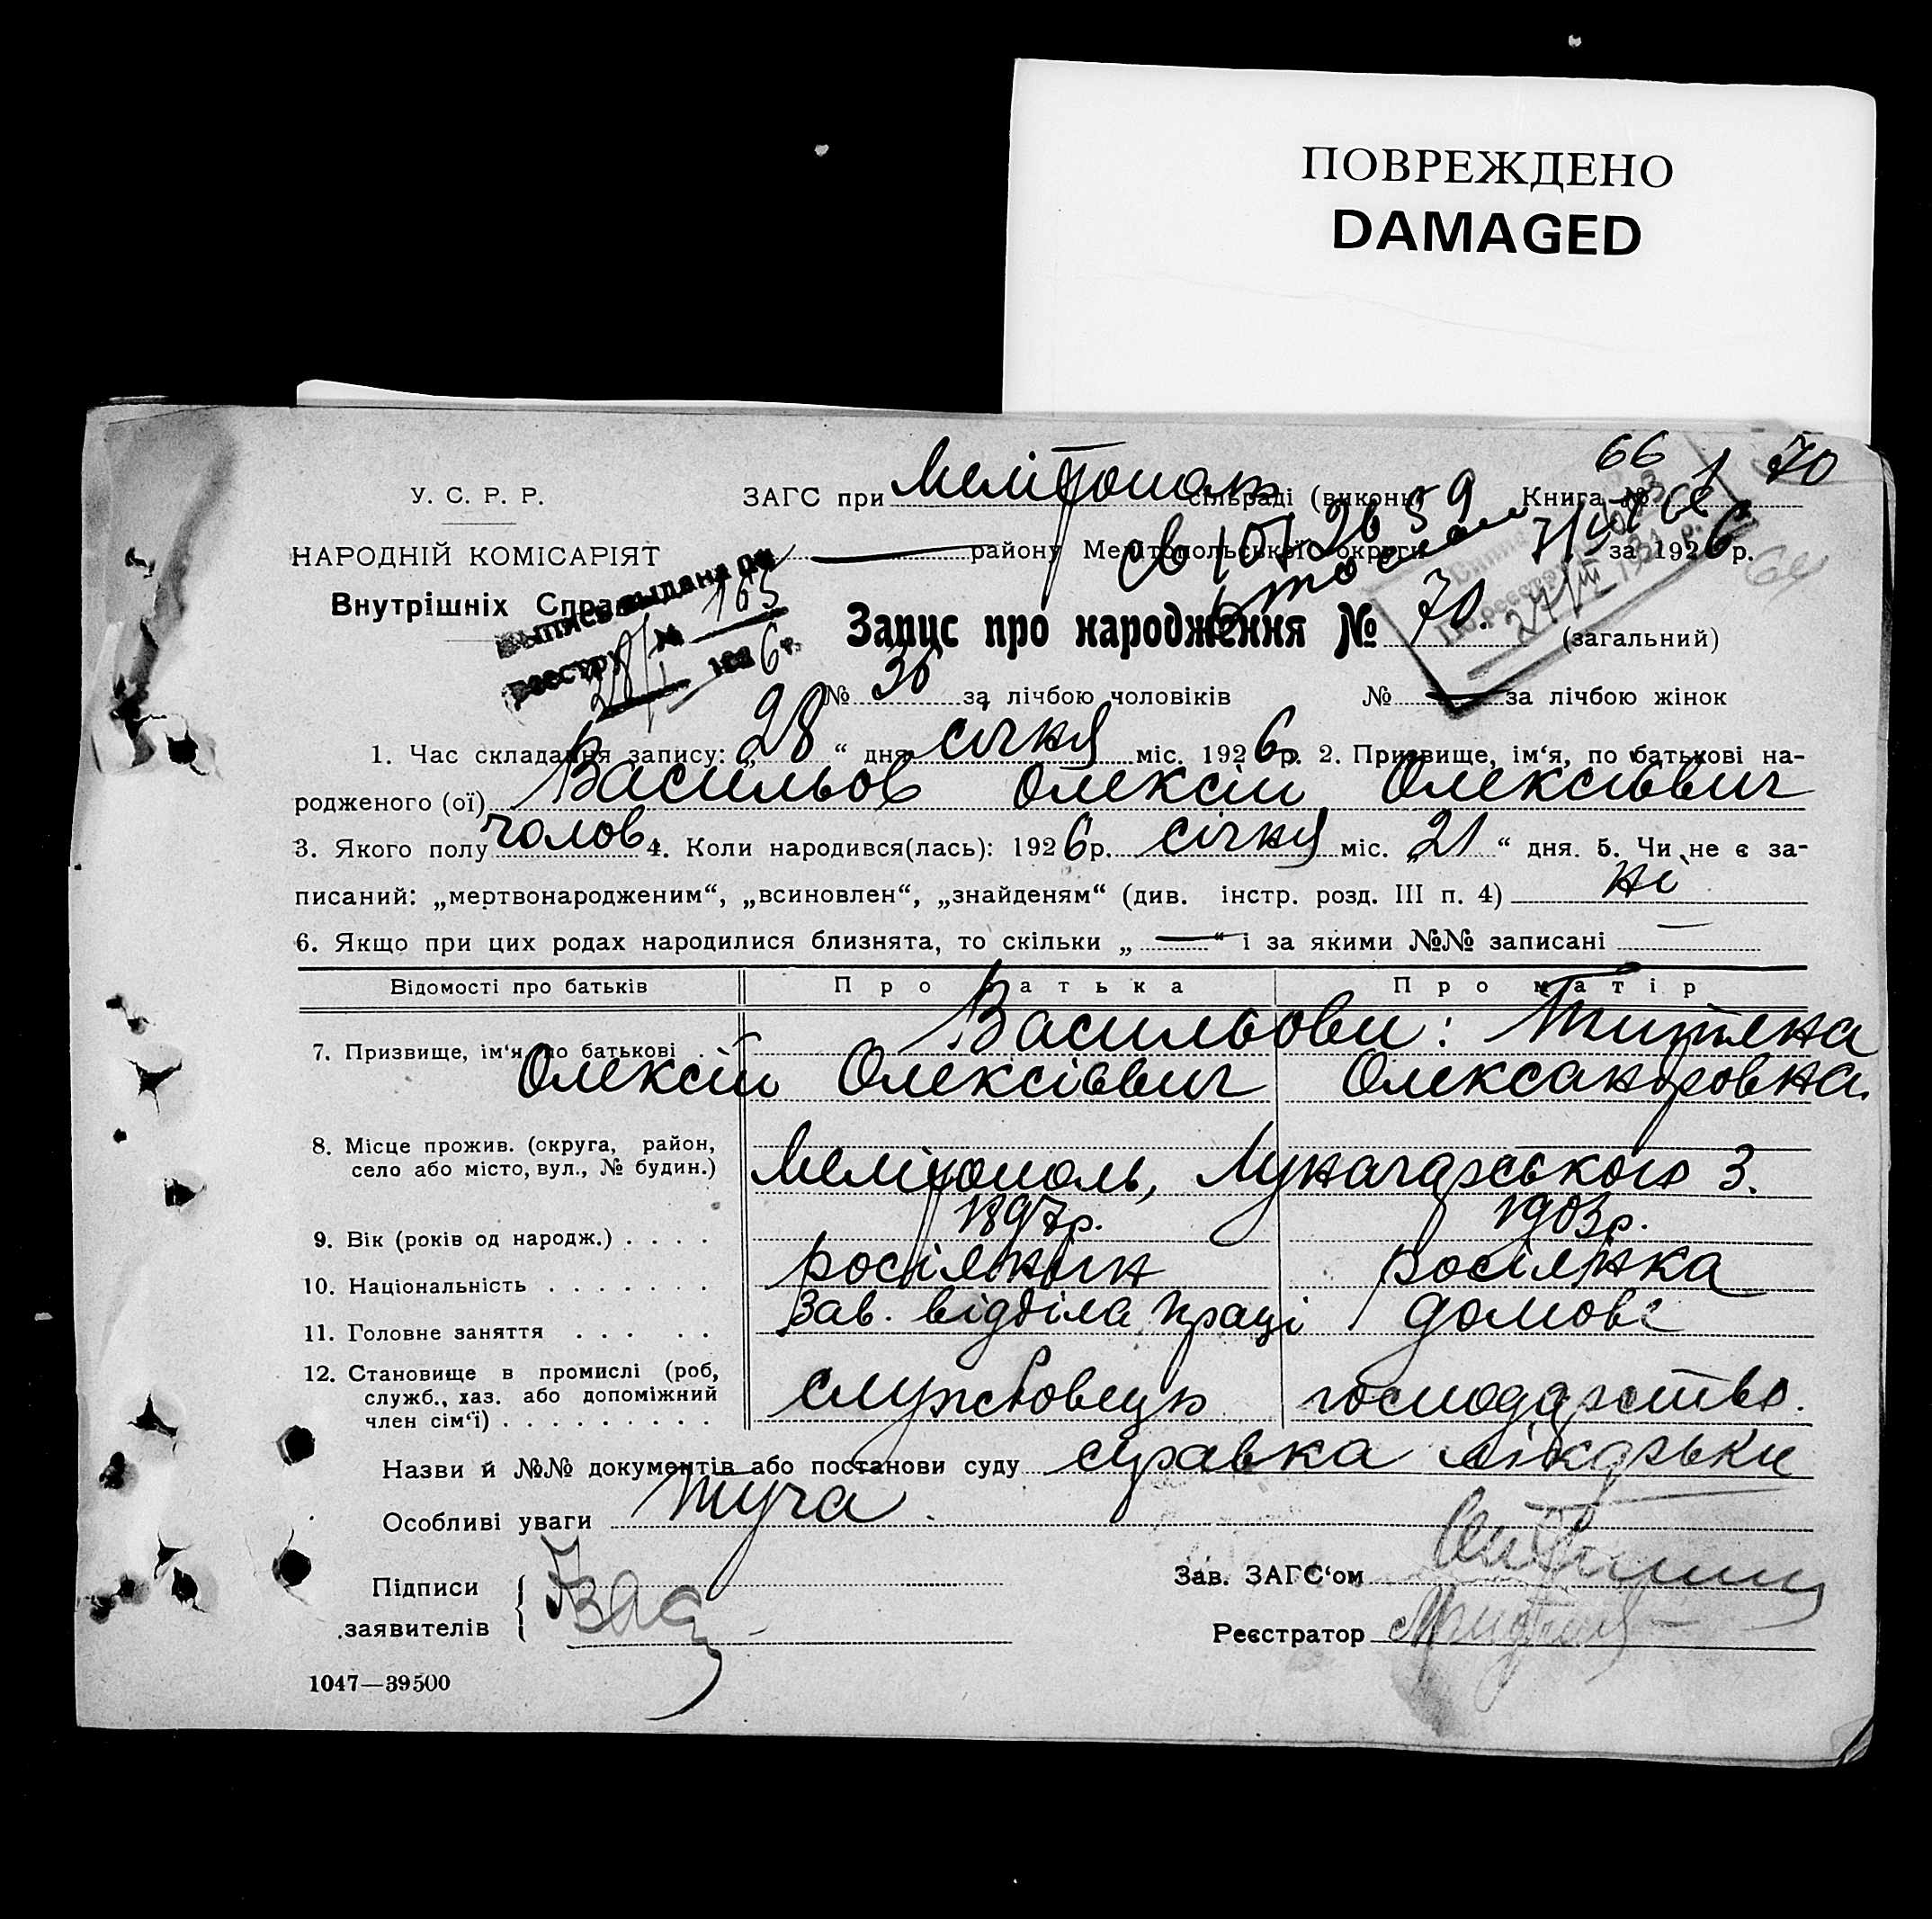 ПОВРЕЖДЕНО
DAMAGED
66 1 70
У. С. Р. Р. ЗАГС при сільраді (виконк) 59 Книга №
НАРОДНІЙ КОМІСАРІЯТ — району Мелітопольської округи за 1926 р.
Внутрішніх Справ
Выпись выдана по
реестру № 163
28/I 1926 г.
Випис
По реєстру
27/III 1931 р.
64
Запис про народження № 70. (загальний)
№ 36 за лічбою чоловіків № — за лічбою жінок
1. Час складання запису: „28“ дня січня міс. 1926 р. 2. Призвище, ім‘я, по батькові на-
родженого (ої) Васильов Олексій Олексієвич
3. Якого полу чолов. 4. Коли народився(лась): 1926 р. січня міс. „21“ дня. 5. Чи не є за-
писаний: „мертвонародженим“, „всиновлен“, „знайденям“ (див. інстр. розд. III п. 4) ні
6. Якщо при цих родах народилися близнята, то скільки „—“ і за якими №№ записані —
Відомості про батьків Про батька Про матір
7. Призвище, ім‘я, по батькові . Васильови: Титяна
Олексій Олексієвич Олександровна.
8. Місце прожив. (округа, район,
село або місто, вул., № будин.) Мелітополь, Луначарського 3.
9. Вік (років од народж.) . . . . 1897р. 1903р.
10. Національність . . . . . . . росіянин росіянка
11. Головне заняття . . . . . Зав. відділа праці домове
12. Становище в промислі (роб,
служб., хаз. або допоміжний
член сім‘ї) . . . . . . . . . службовець господарство.
Назви й №№ документів або постанови суду справка лікарьки
Особливі уваги Туча.
Підписи
заявителів Вас
Зав. ЗАГС‘ом
Реєстратор
1047—39500